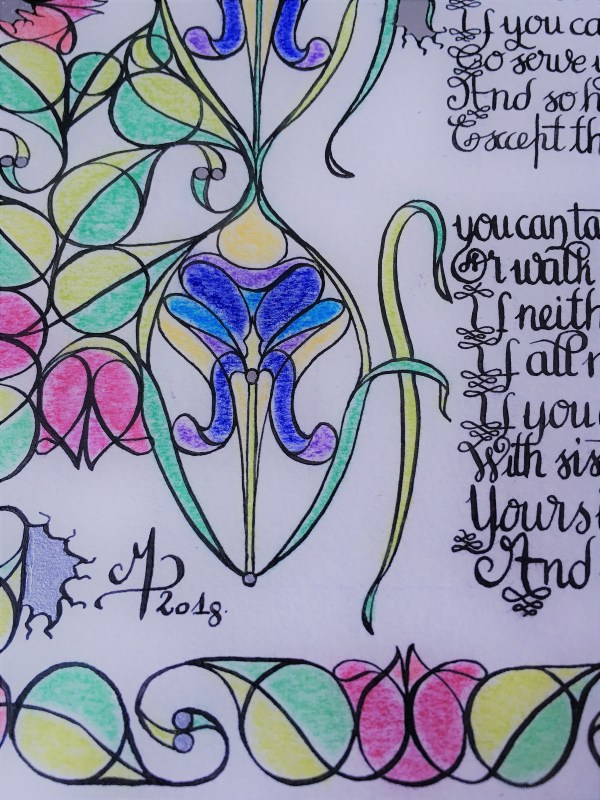 If you ca
To serve
And so h
Except th
you can ta
Or walk
If neith
If all
If you
With six
Yours i
And
M
2018.